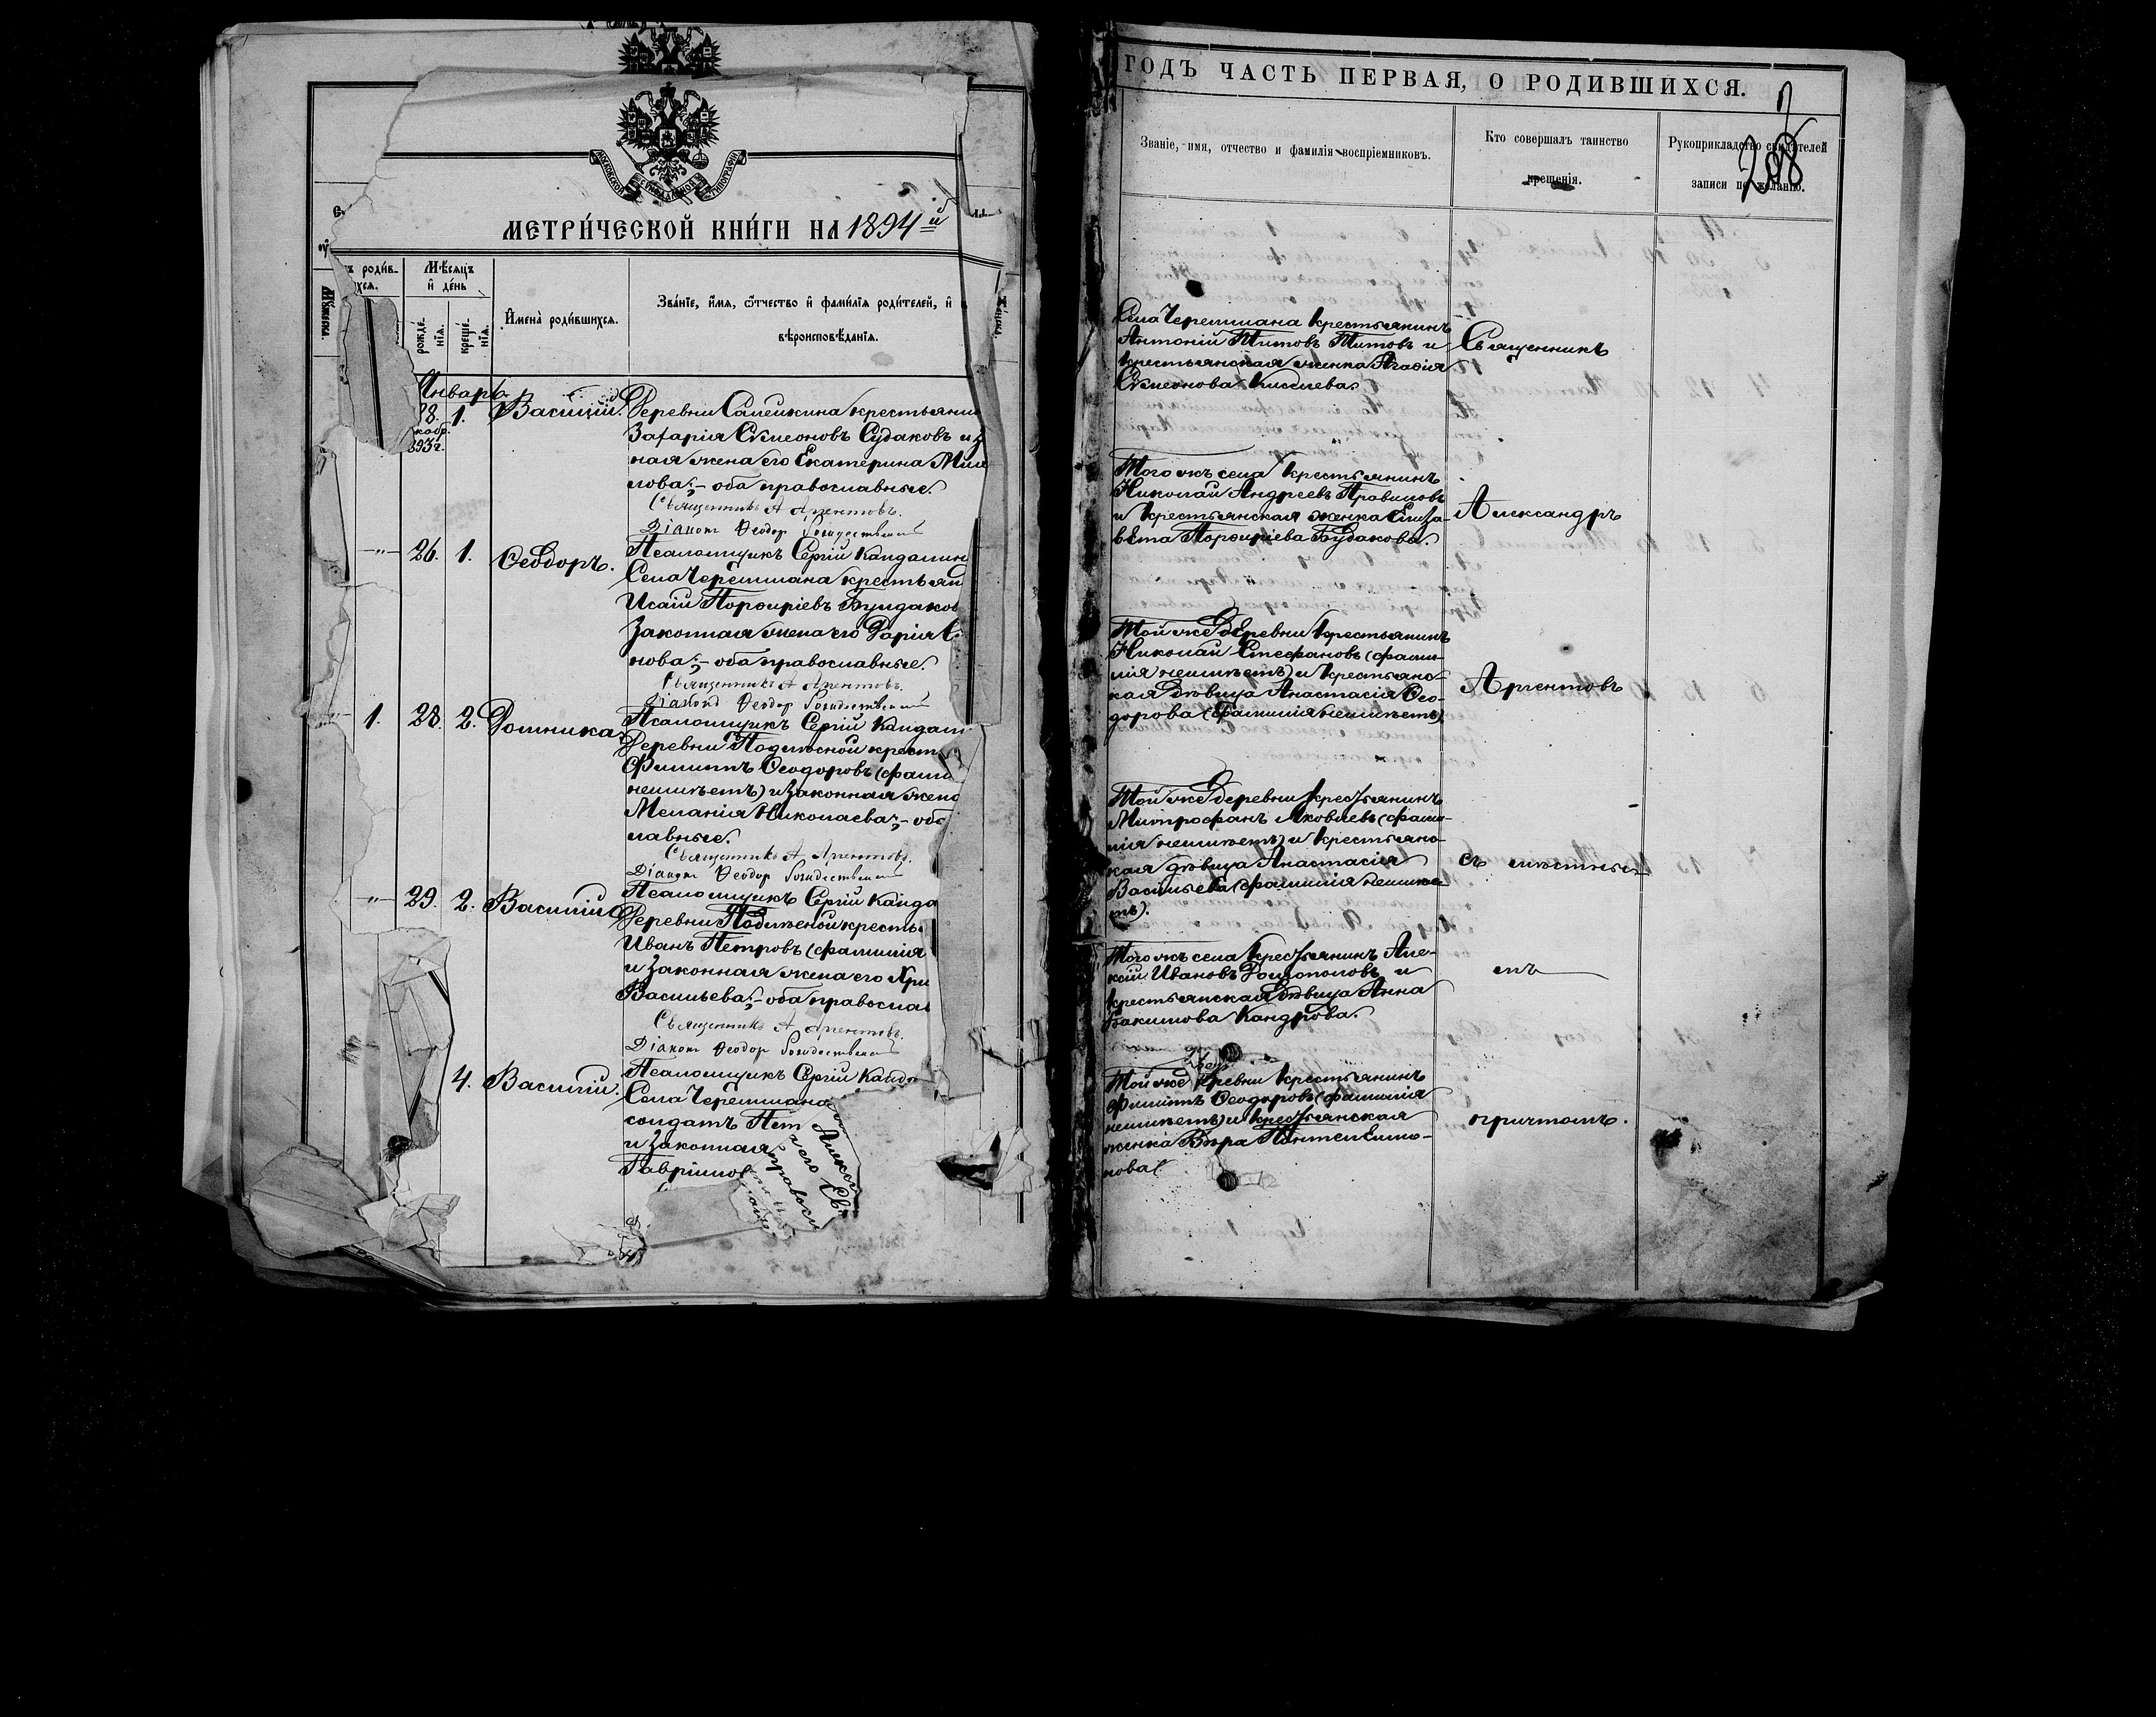 МОСКОВСКОЙ СѴНОДАЛЬНОЙ ТИПОГРАФІИ
МЕТРИ́ЧЕСКОЙ КНИ́ГИ НА 1894й
ъ роди́в-
хся.
Мѣ́сяцъ
и҆ де́нь
рожде́-
нїѧ.
креще́-
нїѧ.
И҆мена̀ роди́вшихсѧ.
Зва́нїе, и҆́мѧ, ѻ҆́тчество и҆ фами́лїѧ роди́телей, и҆
вѣроисповѣ́данїѧ.
Январь
28. 1. Василій. Деревни Самейкина крестьянин
кабр.
893 г.
Захарія Симеоновъ Судаковъ и з
ная жена его Екатерина Ми
лова; - оба православные.
Священникъ А Аргентовъ.
Діаконъ Ѳеодор Рождественск
Псаломщикъ Сергій Кандалин
-"- 26. 1. Ѳеодоръ.
Села Черемшана крестьян
Исаій Порфиріевъ Булдаков
законная жена его Дарія
нова; - оба православные.
Священникъ А Аргентовъ.
Діаконъ Ѳеодор Рождественск
Псаломщикъ Сергій Кандал
1. 28. 2. Домника.
Деревни Подлѣсной крест
Филиппъ Ѳеодоровъ (фами
неимѣетъ) и законная жена
Меланія Николаева; - оба
лавные.
Священникъ А Аргентовъ.
Діаконъ Ѳеодор Рождественск
Псаломщикъ Сергій Канда
-"- 29. 2. Василій
Деревни Подлѣсной кресть
Иванъ Петровъ (фамилія
и законная жена его Хри
Васильева; - оба правосла
Священникъ А Аргентовъ.
Діаконъ Ѳеодор Рождественск
Псаломщикъ Сергій Канда
4. Василій.
Села Черемшана
солдатъ Пет
и законная
Гавріилов
Алекс
а его Ев
правосл
ГОДЪ ЧАСТЬ ПЕРВАЯ, О РОДИВШИХСЯ.
208
Званіе, имя, отчество и фамилія воспріемниковъ.
Кто совершалъ таинство
крещенія.
Рукоприкладство свидѣтелей
записи по желанію.
Села Черемшана крестьянинъ
Антоній Титовъ Титовъ и
крестьянская женка Агафія
Симеонова Киселева.
Священникъ
Того жъ села крестьянинъ
Николай Андреевъ Правиловъ
и крестьянская женка Елиза-
вета Порфиріева Будакова.
Александръ
Той же деревни крестьянинъ
Николай Стефановъ (фами-
лія неимѣетъ) и крестьянс-
кая дѣвица Анастасія Ѳео-
дорова (фамилія неимѣетъ)
Аргентовъ
Той же деревни крестьянинъ
Митрофанъ Яковлевъ (фами-
лія неимѣетъ) и крестьянс-
кая дѣвица Анастасія
Васильева (фамилія неимѣе-
тъ).
съ мѣстны
Того жъ села крестьянинъ Але-
ксій Ивановъ Долгополовъ и
крестьянская дѣвица Анна
Бакимова Кандрова.
мъ
Той же деревни крестьянинъ
Филиппъ Ѳеодоровъ (фамилія
неимѣетъ) и крестьянская
женка Вѣра Пантелеимо-
нова.
причтомъ.